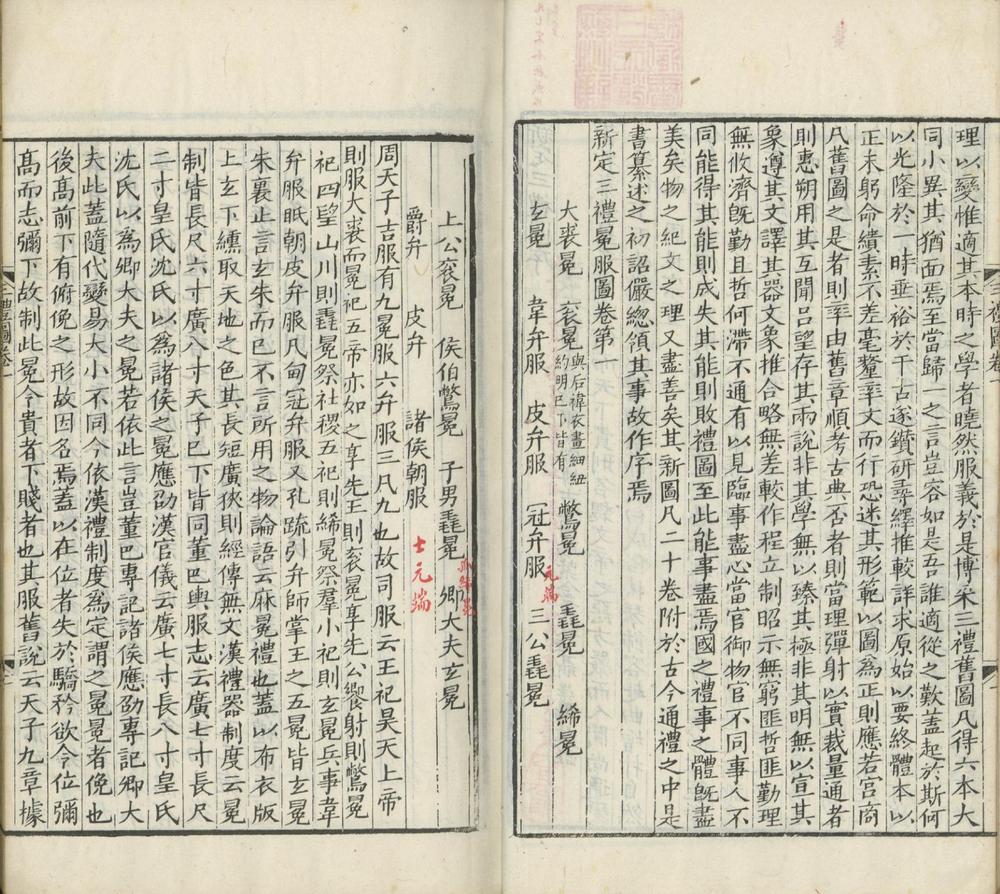 理以變惟適其本時之學者曉然服義於是博采三禮舊圖凡得六本大
同小異其猶面焉至當歸一之言豈容如是吾誰適從之歎蓋起於斯何
以光隆於一時垂裕於千古遂鑽研尋繹推較詳求原始以要終體本以
正末躬命繢素不差毫釐率文而行恐迷其形範以圖為正則應若宮商
凡舊圖之是者則率由舊章順考古典否者則當理彈射以實裁量通者
則惠朔用其互聞呂望存其兩說非其學無以臻其極非其明無以宣其
象遵其文譯其器文象推合略無差較作程立制昭示無窮匪哲匪勤理
無攸濟旣勤且哲何滯不通有以見臨事盡心當官御物官不同事人不
同能得其能則成失其能則敗禮圖至此能事盡焉國之禮事之體旣盡
美矣物之紀文之理又盡善矣其新圖凡二十卷附於古今通禮之中是
書纂述之初詔儼總領其事故作序焉
新定三禮冕服圖卷第一
大裘冕 袞冕 與后褘衣畫細紐約明已下皆有 鷩冕 毳冕 絺冕
玄冕 韋弁服 皮弁服 冠弁服 元端 三公毳冕
三禮圖卷一
上公袞冕 侯伯鷩冕 子男毳冕 孤絺冕 卿大夫玄冕
爵弁 皮弁 諸侯朝服 士元端
周天子吉服有九冕服六弁服三凡九也故司服云王祀昊天上帝
則服大裘而冕祀五帝亦如之享先王則袞冕享先公饗射則鷩冕
祀四望山川則毳冕祭社稷五祀則絺冕祭羣小祀則玄冕兵事韋
弁服眡朝皮弁服凡甸冠弁服又孔疏引弁師掌王之五冕皆玄冕
朱裏止言玄朱而已不言所用之物論語云麻冕禮也蓋以布衣版
上玄下纁取天地之色其長短廣狹則經傳無文漢禮器制度云冕
制皆長尺六寸廣八寸天子已下皆同董巴輿服志云廣七寸長尺
二寸皇氏沈氏以為諸侯之冕應劭漢官儀云廣七寸長八寸皇氏
沈氏以為卿大夫之冕若依此言豈董巴專記諸侯應劭專記卿大
夫此蓋隨代變易大小不同今依漢禮制度為定謂之冕冕者俛也
後高前下有俯俛之形故因名焉蓋以在位者失於驕矜欲令位彌
高而志彌下故制此冕令貴者下賤者也其服舊說云天子九章據
三禮圖卷一